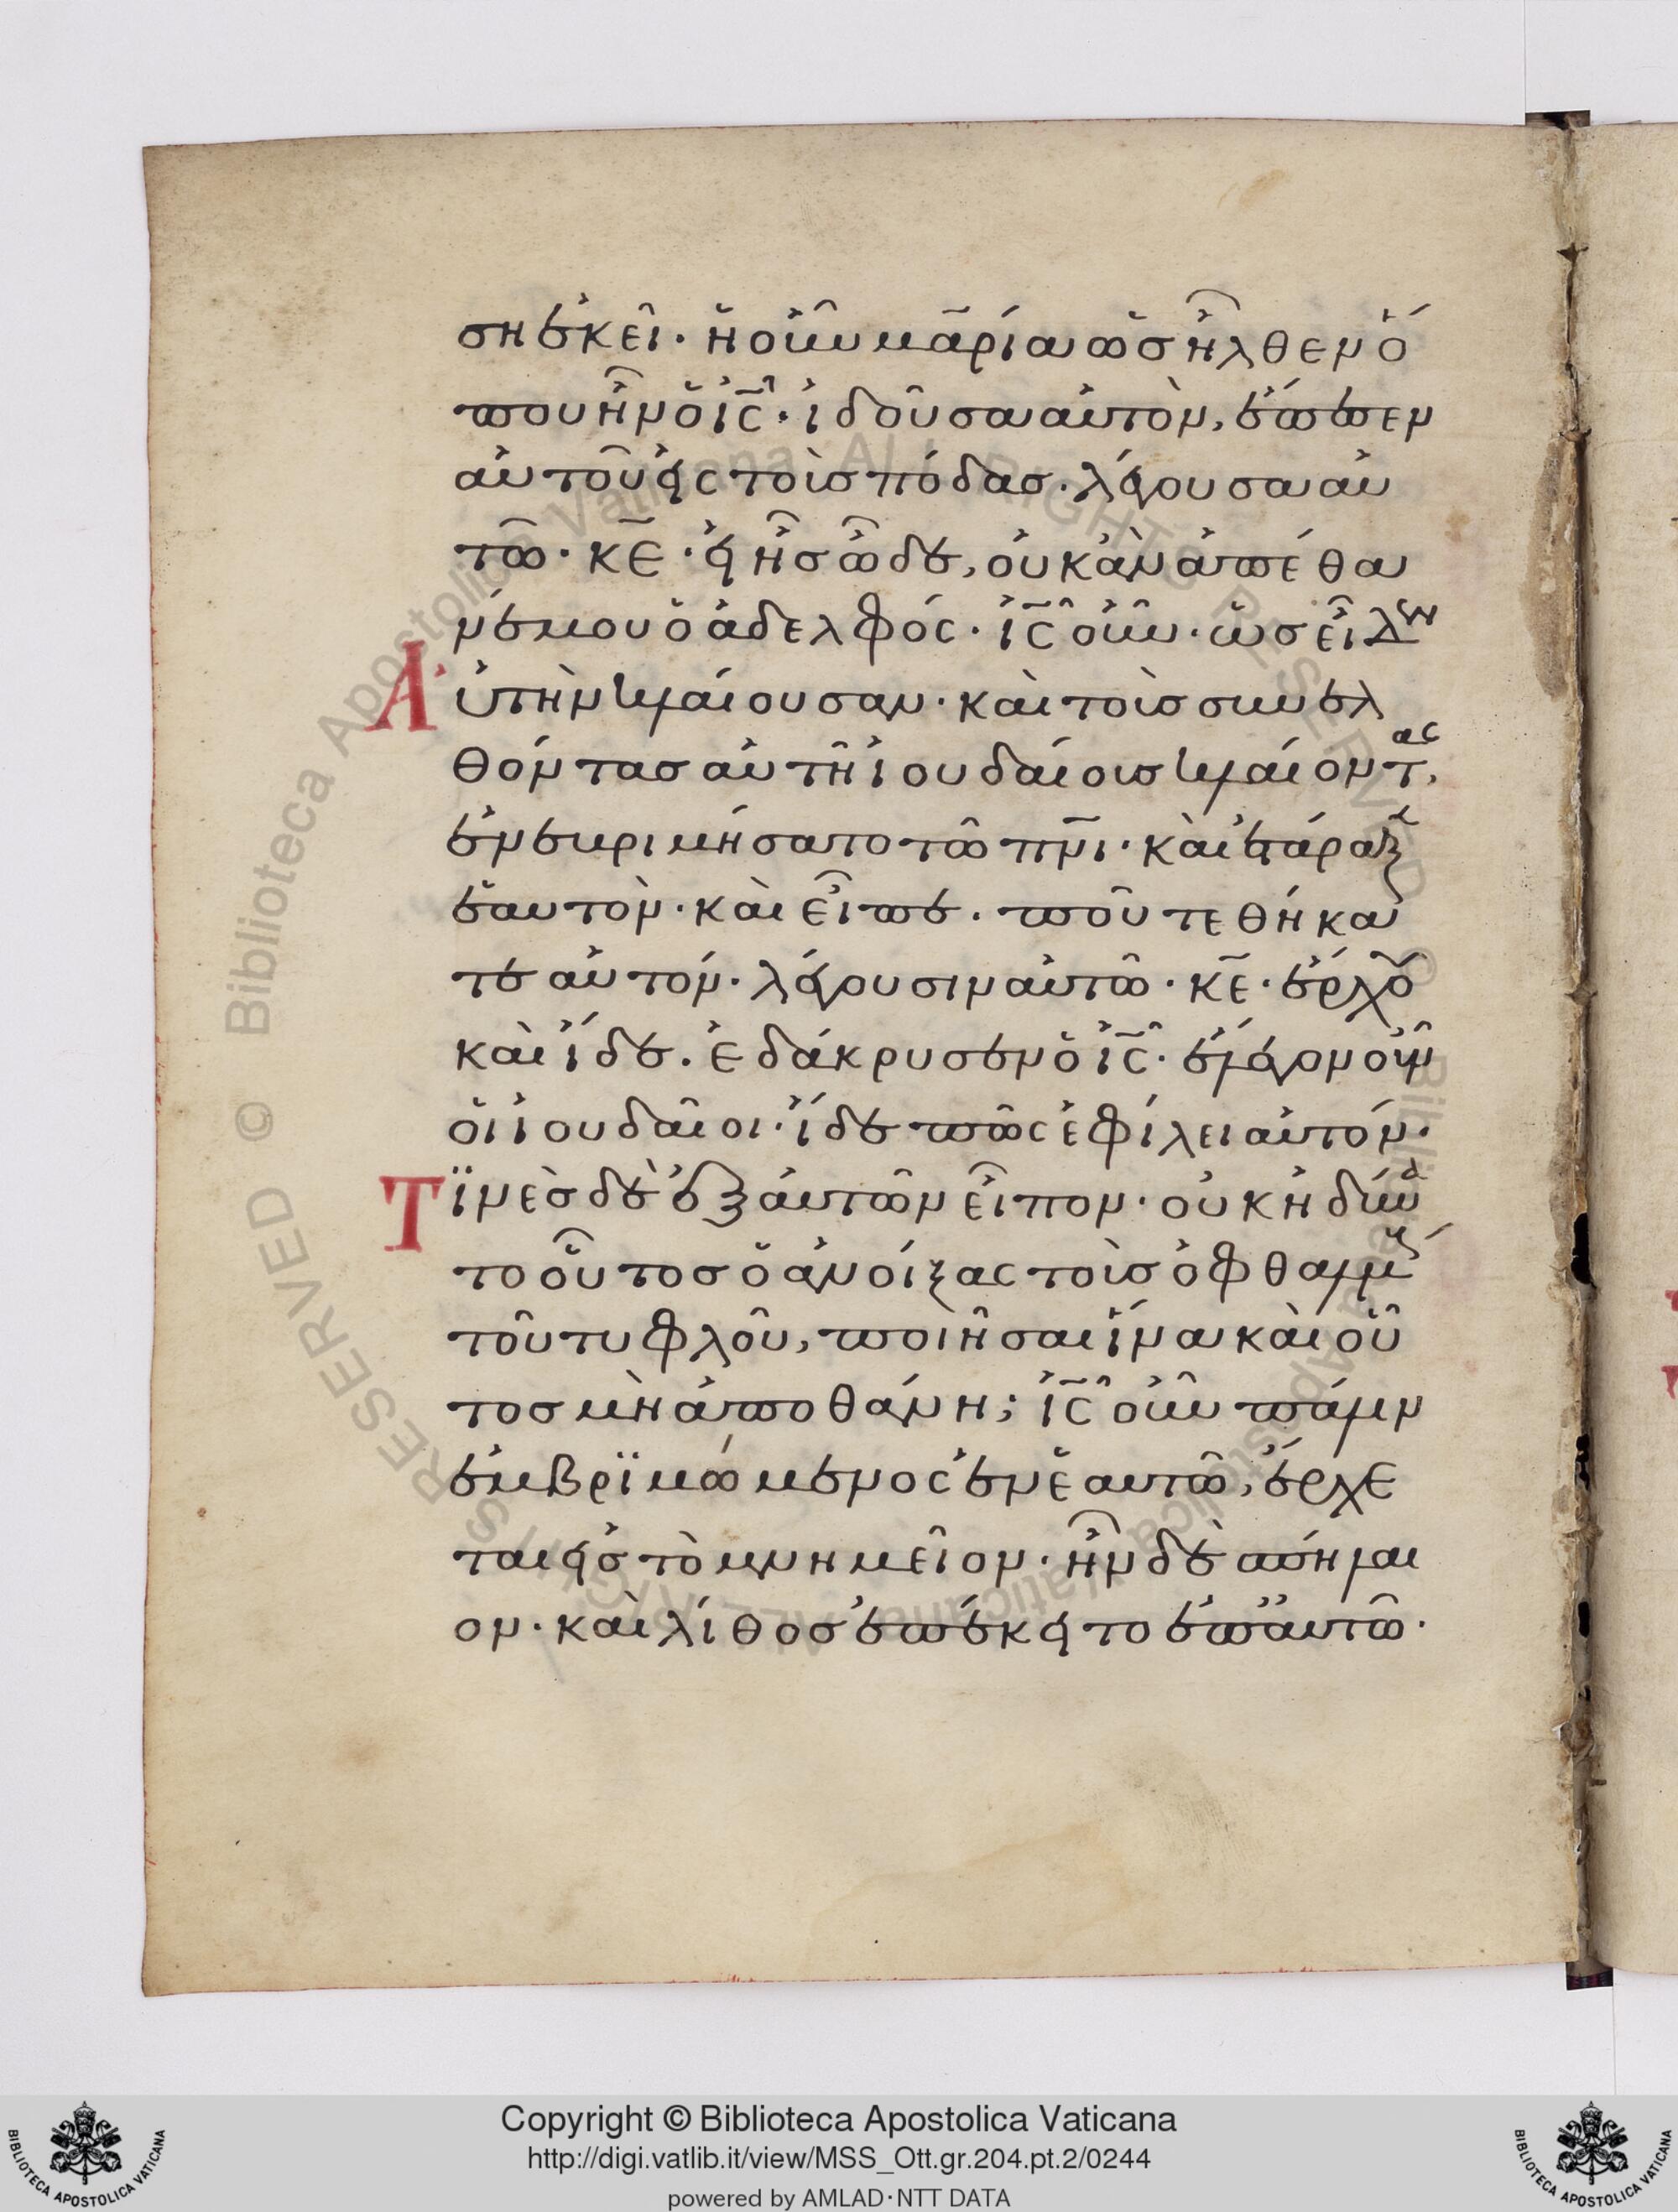 ση ἐκεῖ· ἡ οὖν μαρία ὡς ἦλθεν ὅ
που ἦν ὁ ἰς̅· ἰδοῦσα αὐτὸν, ἔπεσεν
αὐτοῦ εἰς τοὺς πόδας· λέγουσα αὐ
τῶ· κ̅ε̅· εἰ ἦς ὧδε, οὐκ ἂν ἀπέθα
νέ μου ὁ ἀδελφός· ἰς̅ οὖν· ὡς εἶδεν
Αὐτὴν κλαίουσαν· καὶ τοὺς συνελ
θόντας αὐτῆ ἰουδαίους κλαίοντας,
ἐνεβριμήσατο τῶ π̅ν̅ι̅· καὶ ἐτάραξεν
ἑαυτὸν· καὶ εἶπε· ποῦ τεθήκα
τε αὐτόν· λέγουσιν αὐτῶ· κ̅ε̅· ἔρχου
καὶ ἴδε· ἐδάκρυσεν ὁ ἰς̅· ἔλεγον οὖν
οἱ ἰουδαῖοι· ἴδε πῶς ἐφίλει αὐτόν·
Τϊνὲς δὲ ἐξ αὐτῶν εἶπον· οὐκ ἠδύνα
το οὗτος ὁ ἀνοίξας τοὺς ὀφθαλμοὺς
τοῦ τυφλοῦ, ποιῆσαι ἵνα καὶ οὗ
τος μὴ ἀποθάνη; ἰς̅ οὖν πάλιν
ἐμβρϊμώμενος ἐν ἑαυτῶ, ἔρχε
ται εἰς τὸ μνημεῖον· ἦν δὲ σπήλαι
ον· καὶ λίθος ἐπέκειτο ἐπ' αὐτῶ·
Copyright © Biblioteca Apostolica Vaticana
http://digi.vatlib.it/view/MSS_Ott.gr.204.pt.2/0244
powered by AMLAD·NTT DATA
BIBLIOTECA APOSTOLICA VATICANA
BIBLIOTECA APOSTOLICA VATICANA